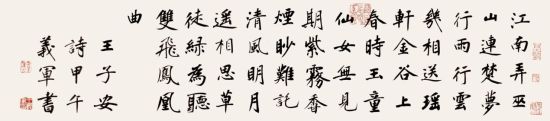 江南弄巫
山連楚夢
行雨行雲
幾相送瑶
軒金谷上
春時玉童
仙女無見
期紫霧香
煙眇難託
清風明月
遥相思草
徒緑為聽
雙飛鳳凰
曲
王子安
詩甲午
義軍書